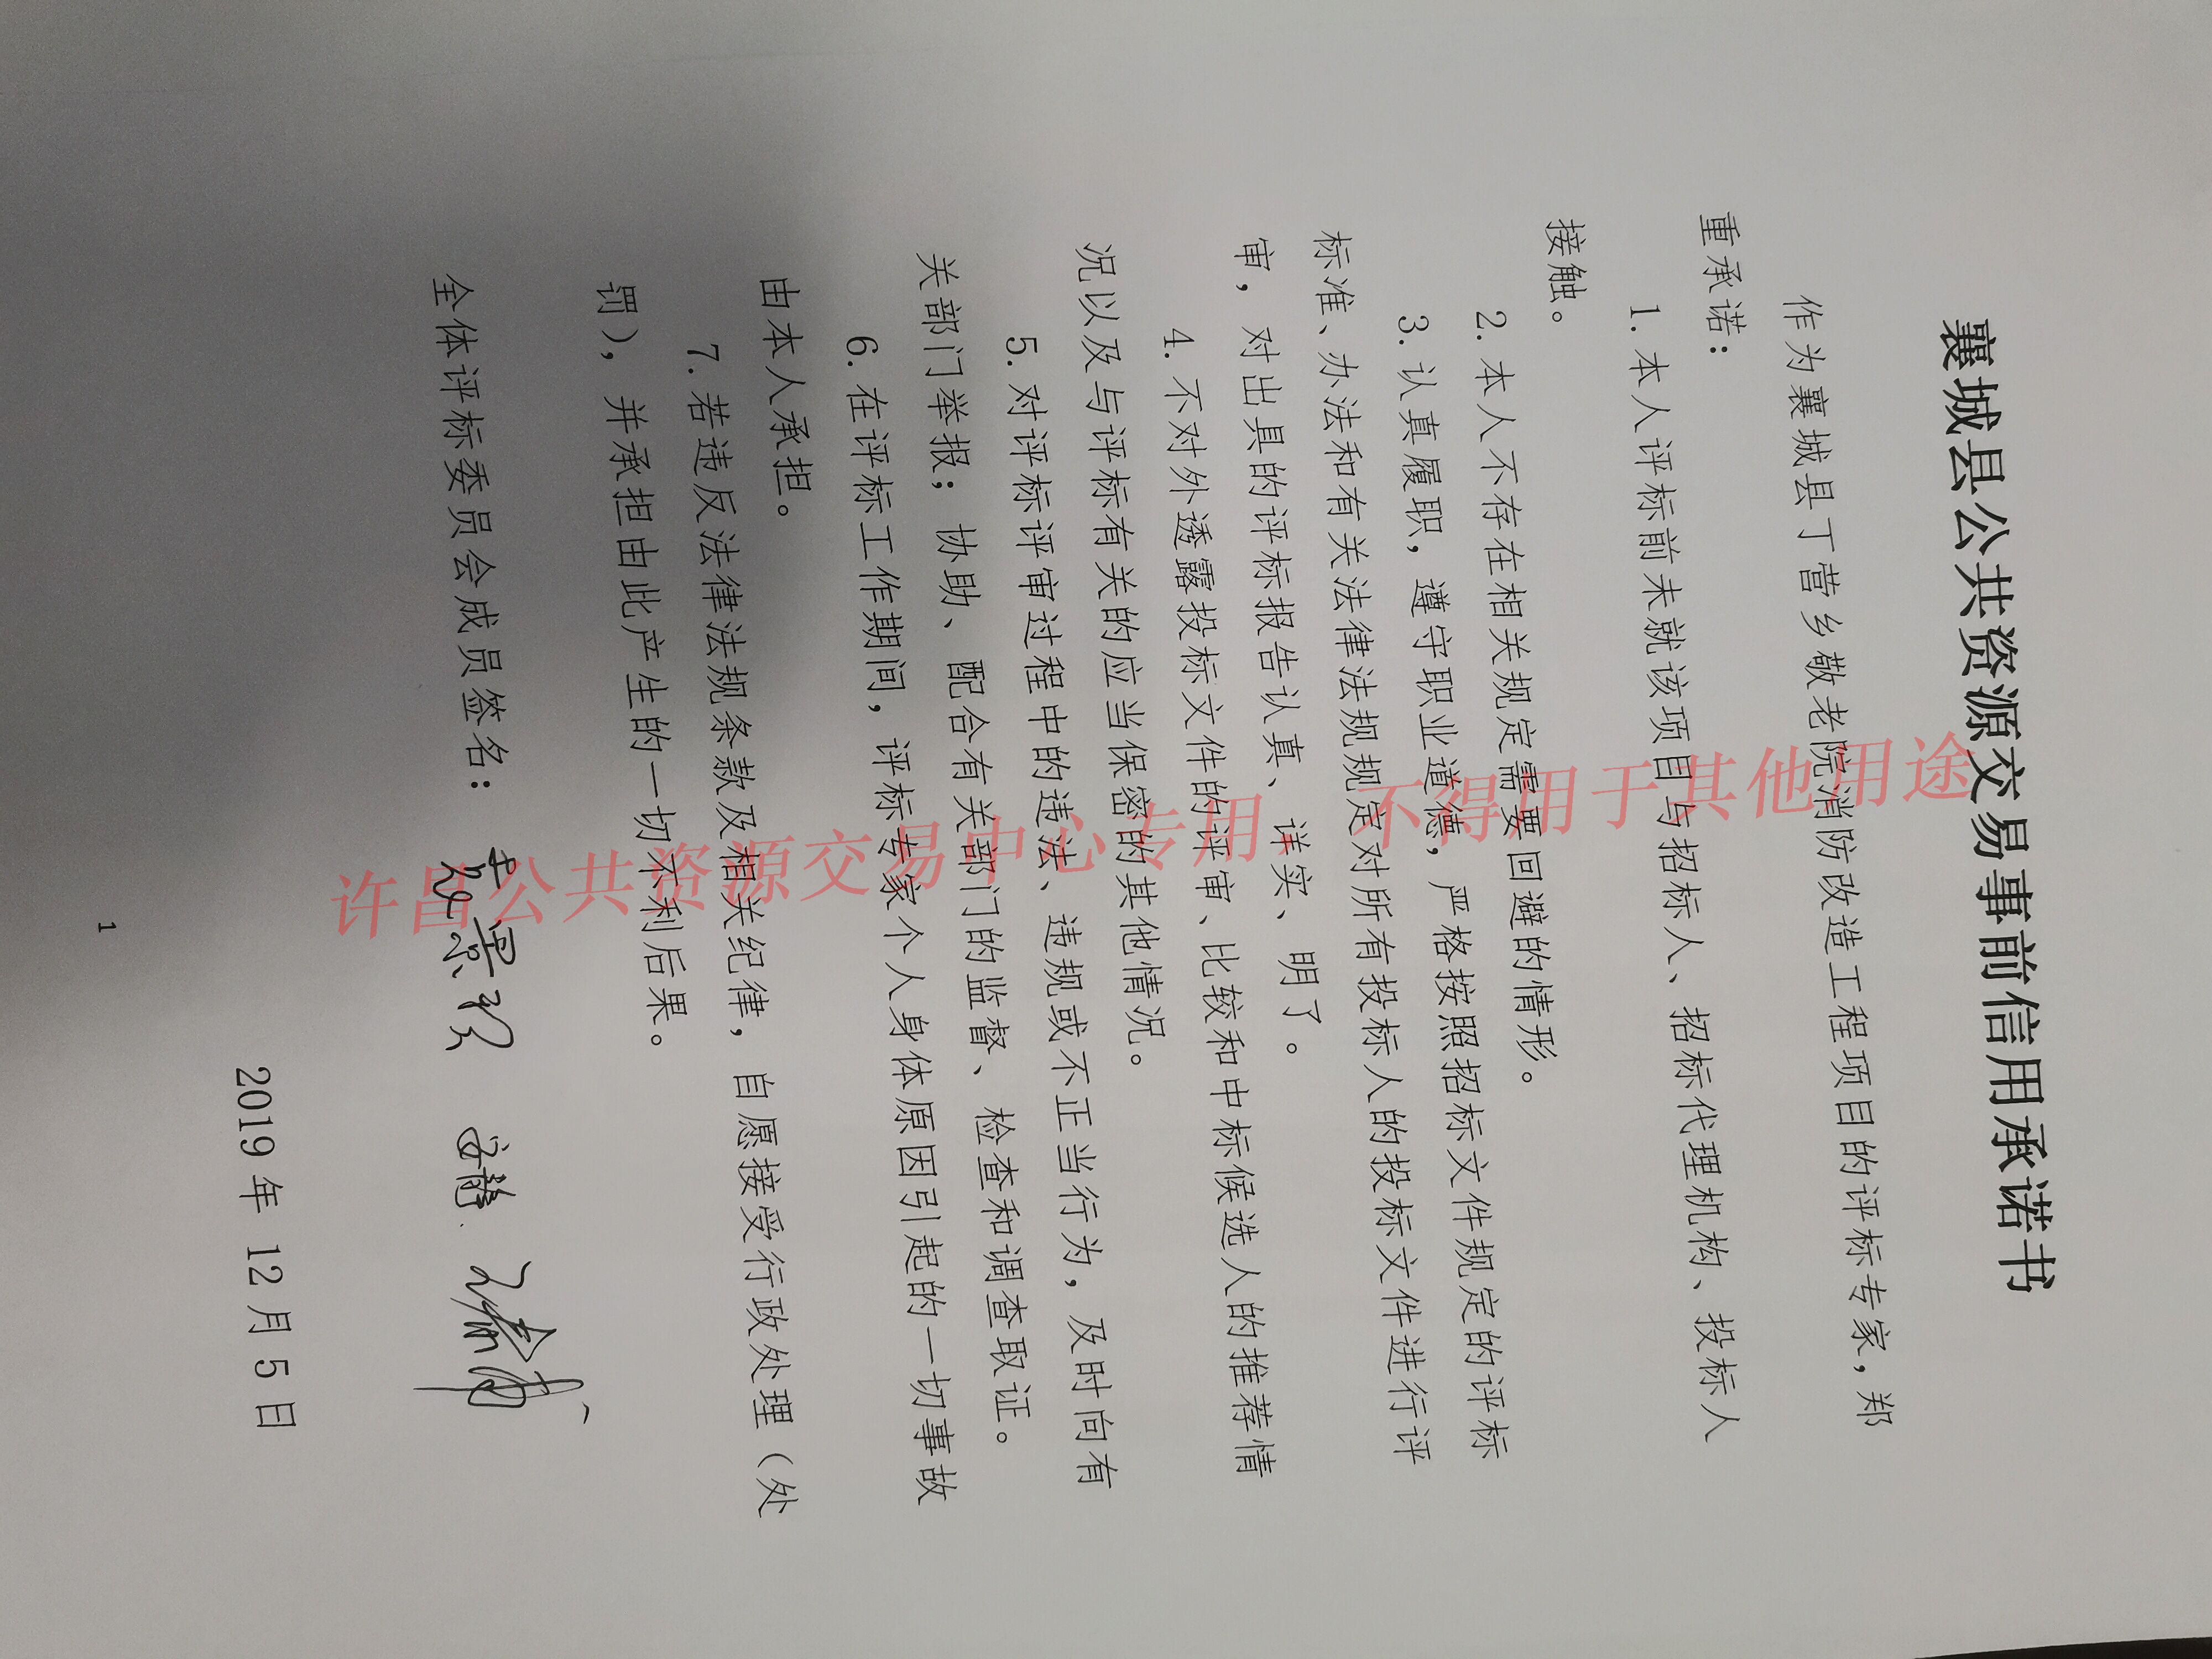 襄城县公共资源交易事前信用承诺书
作为襄城县丁营乡敬老院消防改造工程项目的评标专家，郑
重承诺：
1.本人评标前未就该项目与招标人、招标代理机构、投标人
接触。
2.本人不存在相关规定需要回避的情形。
3.认真履职，遵守职业道德，严格按照招标文件规定的评标
标准、办法和有关法律法规规定对所有投标人的投标文件进行评
审，对出具的评标报告认真、详实、明了。
4.不对外透露投标文件的评审、比较和中标候选人的推荐情
况以及与评标有关的应当保密的其他情况。
5.对评标评审过程中的违法、违规或不正当行为，及时向有
关部门举报；协助、配合有关部门的监督、检查和调查取证。
6.在评标工作期间，评标专家个人身体原因引起的一切事故
由本人承担。
7.若违反法律法规条款及相关纪律，自愿接受行政处理（处
罚），并承担由此产生的一切不利后果。
全体评标委员会成员签名：
2019年12月5日
1
许昌公共资源交易中心专用，不得用于其他用途